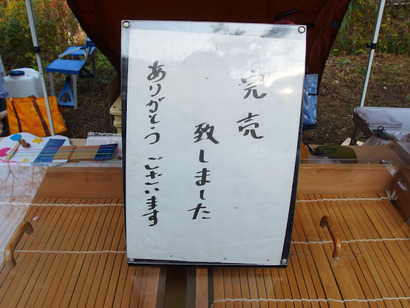 完売
致しました
ありがとうございます